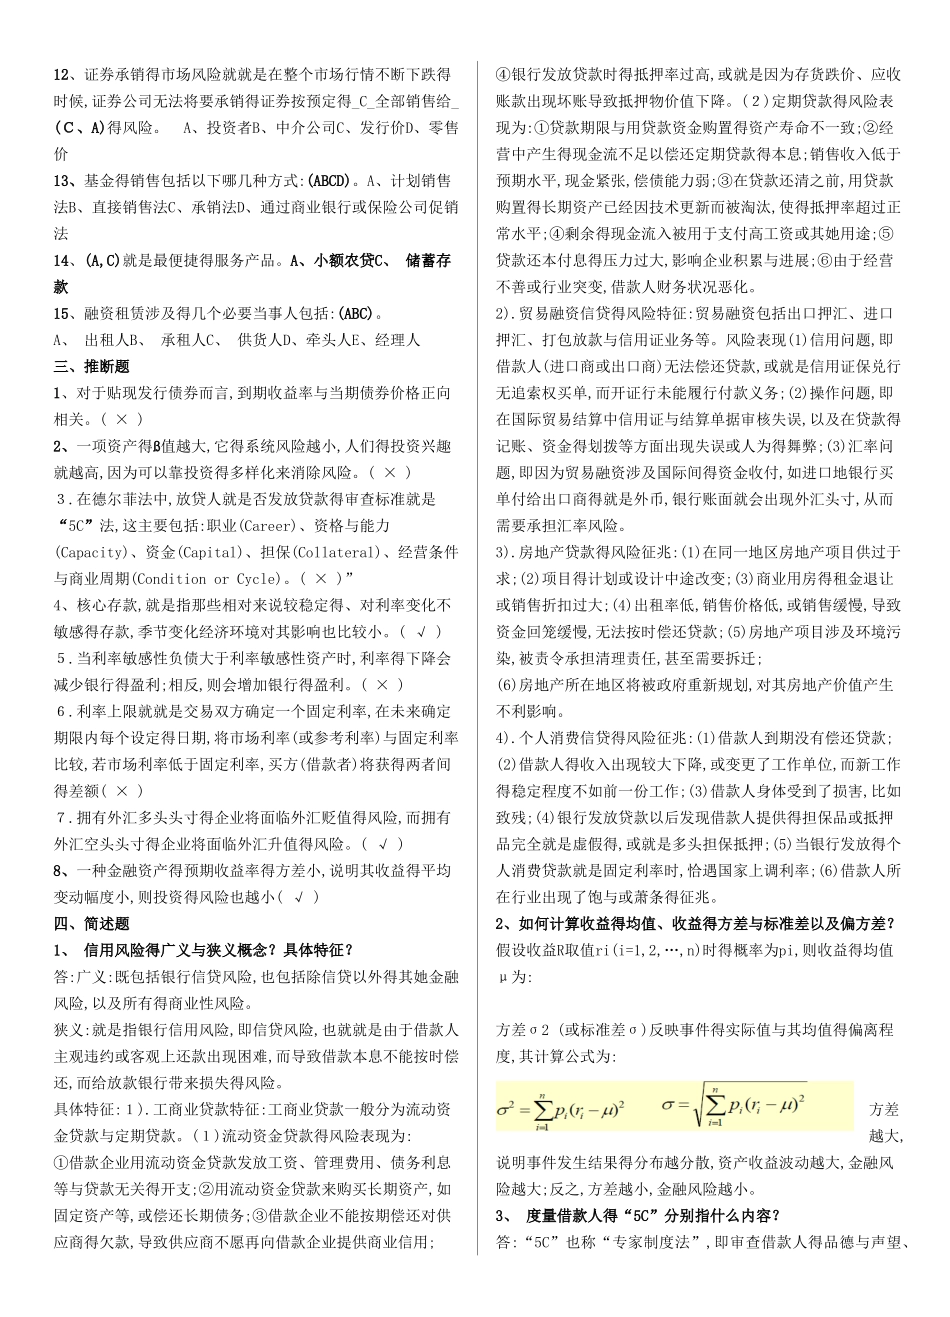 12、证券承销得市场风险就就是在整个市场行情不断下跌得
时候,证券公司无法将要承销得证券按预定得_C_全部销售给_
(C、A)得风险。 A、投资者B、中介公司C、发行价D、零售
价
13、基金得销售包括以下哪几种方式:(ABCD)。A、计划销售
法B、直接销售法C、承销法D、通过商业银行或保险公司促销
法
14、(A,C)就是最便捷得服务产品。A、小额农贷C、 储蓄存
款
15、融资租赁涉及得几个必要当事人包括:(ABC)。
A、 出租人B、 承租人C、 供货人D、牵头人E、经理人
三、推断题
1、对于贴现发行债券而言,到期收益率与当期债券价格正向
相关。( × )
2、一项资产得β值越大,它得系统风险越小,人们得投资兴趣
就越高,因为可以靠投资得多样化来消除风险。( × )
3.在德尔菲法中,放贷人就是否发放贷款得审查标准就是
“5C”法,这主要包括:职业(Career)、资格与能力
(Capacity)、资金(Capital)、担保(Collateral)、经营条件
与商业周期(Condition or Cycle)。( × )”
4、核心存款,就是指那些相对来说较稳定得、对利率变化不
敏感得存款,季节变化经济环境对其影响也比较小。( √ )
5.当利率敏感性负债大于利率敏感性资产时,利率得下降会
减少银行得盈利;相反,则会增加银行得盈利。( × )
6.利率上限就就是交易双方确定一个固定利率,在未来确定
期限内每个设定得日期,将市场利率(或参考利率)与固定利率
比较,若市场利率低于固定利率,买方(借款者)将获得两者间
得差额( × )
7.拥有外汇多头头寸得企业将面临外汇贬值得风险,而拥有
外汇空头头寸得企业将面临外汇升值得风险。( √ )
8、一种金融资产得预期收益率得方差小,说明其收益得平均
变动幅度小,则投资得风险也越小( √ )
四、简述题
1、 信用风险得广义与狭义概念？具体特征？
答:广义:既包括银行信贷风险,也包括除信贷以外得其她金融
风险,以及所有得商业性风险。
狭义:就是指银行信用风险,即信贷风险,也就就是由于借款人
主观违约或客观上还款出现困难,而导致借款本息不能按时偿
还,而给放款银行带来损失得风险。
具体特征:1).工商业贷款特征:工商业贷款一般分为流动资
金贷款与定期贷款。(1)流动资金贷款得风险表现为:
①借款企业用流动资金贷款发放工资、管理费用、债务利息
等与贷款无关得开支;②用流动资金贷款来购买长期资产,如
固定资产等,或偿还长期债务;③借款企业不能按期偿还对供
应商得欠款,导致供应商不愿再向借款企业提供商业信用;
④银行发放贷款时得抵押率过高,或就是因为存货跌价、应收
账款出现坏账导致抵押物价值下降。(2)定期贷款得风险表
现为:①贷款期限与用贷款资金购置得资产寿命不一致;②经
营中产生得现金流不足以偿还定期贷款得本息;销售收入低于
预期水平,现金紧张,偿债能力弱;③在贷款还清之前,用贷款
购置得长期资产已经因技术更新而被淘汰,使得抵押率超过正
常水平;④剩余得现金流入被用于支付高工资或其她用途;⑤
贷款还本付息得压力过大,影响企业积累与进展;⑥由于经营
不善或行业突变,借款人财务状况恶化。
2).贸易融资信贷得风险特征:贸易融资包括出口押汇、进口
押汇、打包放款与信用证业务等。风险表现(1)信用问题,即
借款人(进口商或出口商)无法偿还贷款,或就是信用证保兑行
无追索权买单,而开证行未能履行付款义务;(2)操作问题,即
在国际贸易结算中信用证与结算单据审核失误,以及在贷款得
记账、资金得划拨等方面出现失误或人为得舞弊;(3)汇率问
题,即因为贸易融资涉及国际间得资金收付,如进口地银行买
单付给出口商得就是外币,银行账面就会出现外汇头寸,从而
需要承担汇率风险。
3).房地产贷款得风险征兆:(1)在同一地区房地产项目供过于
求;(2)项目得计划或设计中途改变;(3)商业用房得租金退让
或销售折扣过大;(4)出租率低,销售价格低,或销售缓慢,导致
资金回笼缓慢,无法按时偿还贷款;(5)房地产项目涉及环境污
染,被责令承担清理责任,甚至需要拆迁;
(6)房地产所在地区将被政府重新规划,对其房地产价值产生
不利影响。
4).个人消费信贷得风险征兆:(1)借款人到期没有偿还贷款;
(2)借款人得收入出现较大下降,或变更了工作单位,而新工作
得稳定程度不如前一份工作;(3)借款人身体受到了损害,比如
致残;(4)银行发放贷款以后发现借款人提供得担保品或抵押
品完全就是虚假得,或就是多头担保抵押;(5)当银行发放得个
人消费贷款就是固定利率时,恰遇国家上调利率;(6)借款人所
在行业出现了饱与或萧条得征兆。
2、如何计算收益得均值、收益得方差与标准差以及偏方差？
假设收益R取值ri(i=1,2,…,n)时得概率为pi,则收益得均值
μ为:
方差σ2 (或标准差σ)反映事件得实际值与其均值得偏离程
度,其计算公式为:
σ²=∑ⁿᵢ₌₁pᵢ(rᵢ−μ)² σ=√∑ⁿᵢ₌₁pᵢ(rᵢ−μ)² 方差
越大,
说明事件发生结果得分布越分散,资产收益波动越大,金融风
险越大;反之,方差越小,金融风险越小。
3、 度量借款人得“5C”分别指什么内容？
答:“5C”也称“专家制度法”,即审查借款人得品德与声望、